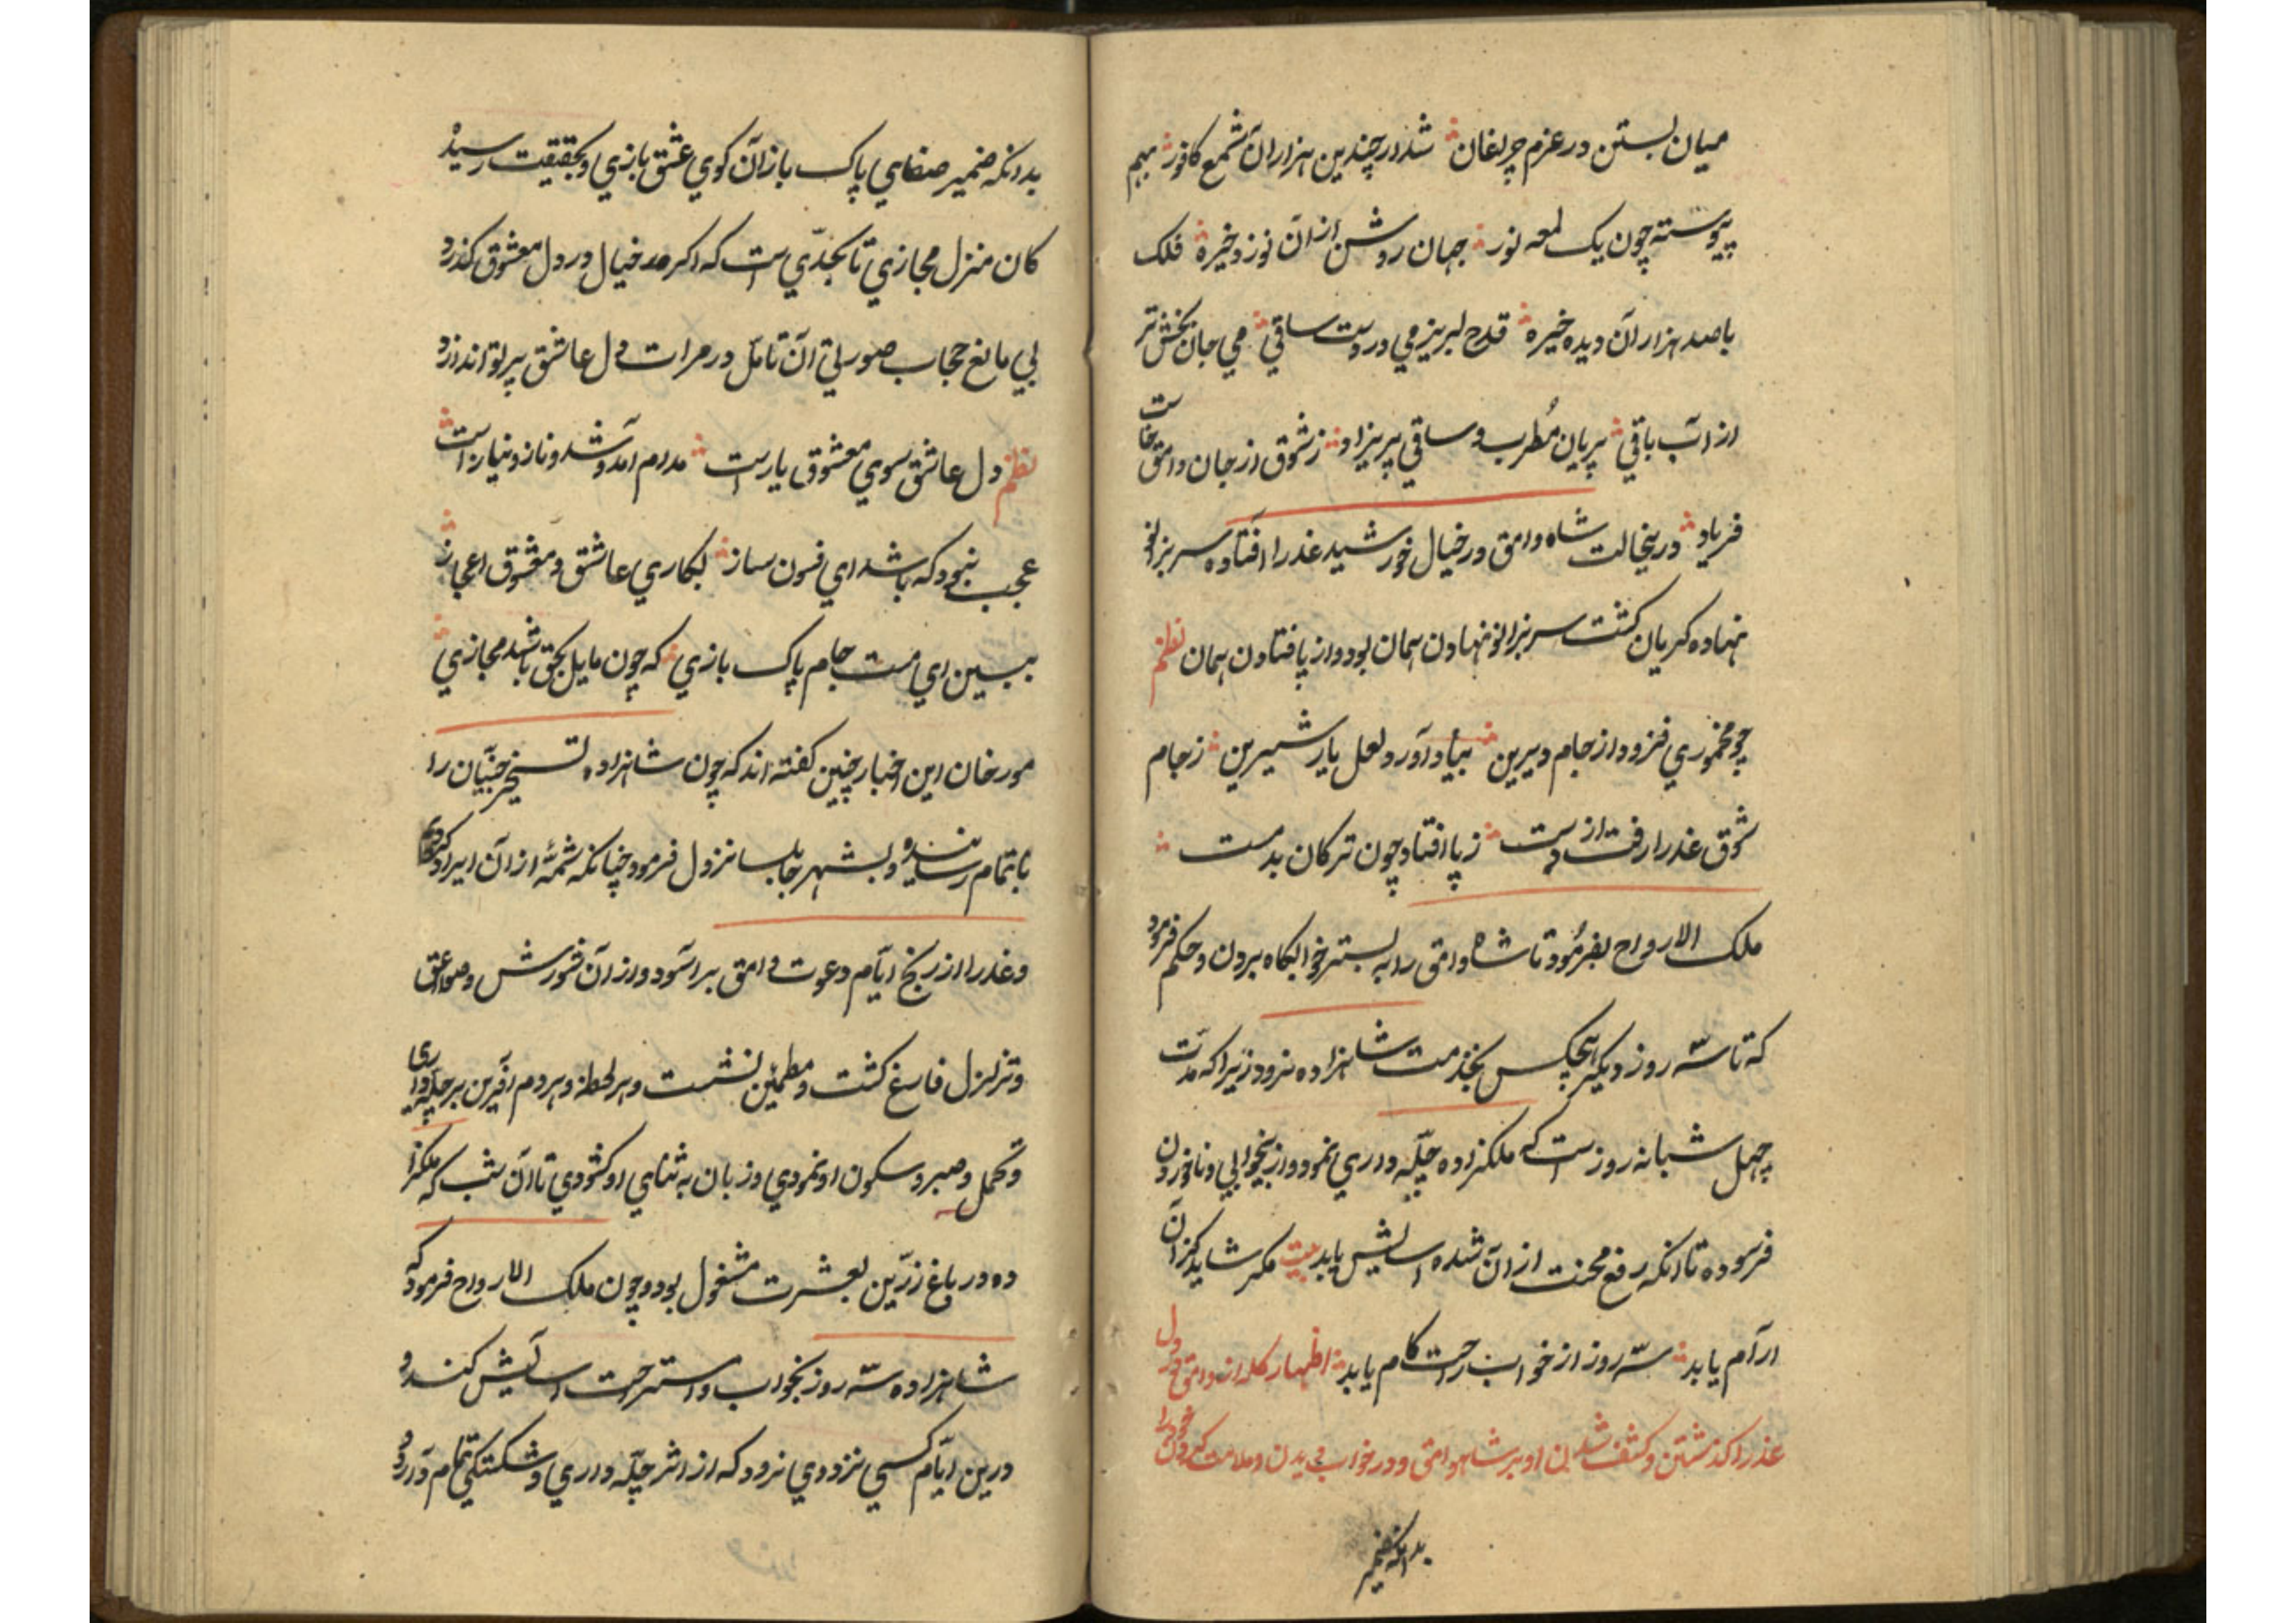 میان بستن در عزم چراغان شد از چندین هزاران شمع کافور بهم
پیوسته چون یک لمعه نور جهان روشن از آن نور و خیره فلک
باصد هزاران دیده خیره قدح لبریز می در دست ساقی می جان بخش تر
از آب باقی پریان مُطرب و ساقی پریزاد ز شوق از جان وامق خاست
فریاد درینحالت شاه وامق در خیال خورشید عذرا افتاده سر بزانو
نهاده کریان کشت سر بزانو نهادن همان بود و از پا فتادن همان نظم
چو مخموری فزود از جام دیرین بیاد آورد لعل یار شیرین ز جام
شوق عذرا رفت از دست ز پا افتاد چون ترکان بدمست
ملک الارواح بفرمُود تا شاه وامق را به بستر خوابکاه بردن و حکم فرمود
که تا سّه روز دیکر هیچکس بخدمت شاهزاده نرود زیرا که مدّت
چهل شبانه روزست که ملکزاده چلّه داری نمود و از بیخوابی و ناخوردن
فرسوده تا انکه رفع محنت از آن شده اسایش یابد بیت مکر شاید کزان
ارآم یابد سّه روز از خواب راحت کام یابد اظهار کله از وامق در دل
عذرا کذشتن و کشف شدن او بر شاه وامق و در خواب دیدن و ملامت کردن خود را
بدانکه ضمیر
بدانکه ضمیر صفای پاک بازان کوی عشق بازی و بحقیقت رسید
کان منزل مجازی تا بحدّی است که اکر در خیال و در دل معشوق کذرد
بی مانع حجاب صورتی آن تامّل در مرات دل عاشق پرتو اندازد
نظم دل عاشق سوی معشوق یار است مدام آمد و شد و ناز و نیاز است
عجب نبود که باشد ای فسون ساز بکاری عاشق و معشوق اعجاز
ببین ای مست جام پاک بازی که چون مایل بحق باشد مجازی
مورخان این اخبار چنین کفته اند که چون شاهزاده تسخیر جنّیان را
باتمام رسانیده و بشهر جابلسا نزول فرمود چنانکه شمّهٔ از آن ایراد
و عذرا از رنج ایّام دعوت وامق براسود و از آن شورش و صواعق
و تزلزل فارغ کشت و مطمئن نشست و هر لحظه و هر دم آفرین بر چلّه داری
و تحمل و صبر و سکون او نمودی و زبان به ثنای او کشودی تا آن شب که ملکزا
ده در باغ زرّین بعشرت مشغول بود و چون ملک الارواح فرمود که
شاهزاده سّه روز بخواب و استراحت اسآیش کند و
درین ایّام کسی نزد وی نرود که از اثر چلّه داری و شکستکی تمام دارد